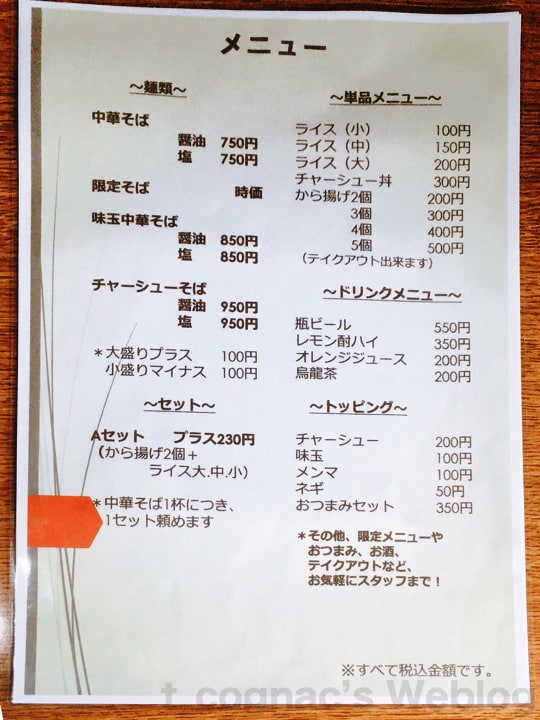 メニュー
～麺類～
中華そば
醤油 750円
塩 750円
限定そば 時価
味玉中華そば
醤油 850円
塩 850円
チャーシューそば
醤油 950円
塩 950円
＊大盛りプラス 100円
小盛りマイナス 100円
～セット～
Aセット プラス230円
（から揚げ2個＋
ライス大.中.小）
＊中華そば1杯につき、
1セット頼めます
～単品メニュー～
ライス（小） 100円
ライス（中） 150円
ライス（大） 200円
チャーシュー丼 300円
から揚げ2個 200円
3個 300円
4個 400円
5個 500円
（テイクアウト出来ます）
～ドリンクメニュー～
瓶ビール 550円
レモン酎ハイ 350円
オレンジジュース 200円
烏龍茶 200円
～トッピング～
チャーシュー 200円
味玉 100円
メンマ 100円
ネギ 50円
おつまみセット 350円
＊その他、限定メニューや
おつまみ、お酒、
テイクアウトなど、
お気軽にスタッフまで！
※すべて税込金額です。
t_cognac's Weblog